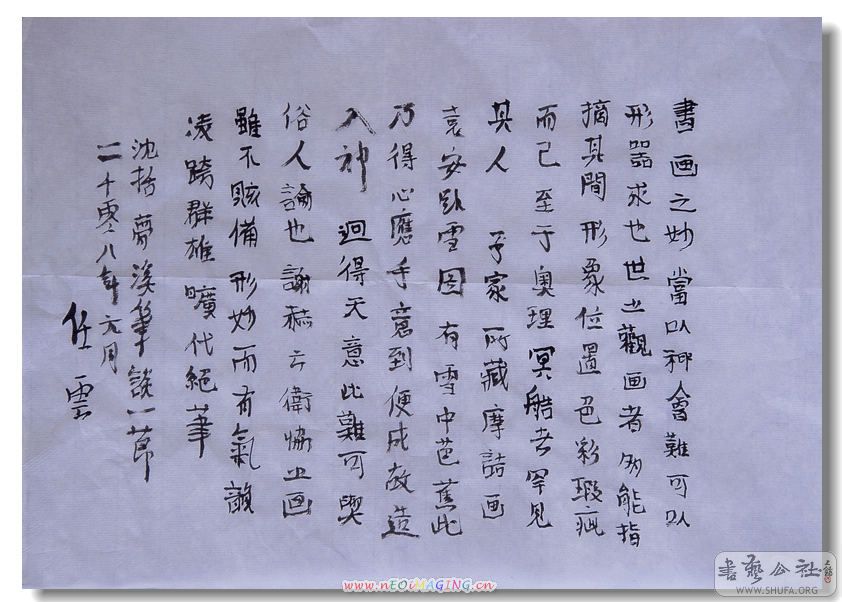 書画之妙當以神會難可以
形器求也世之觀画者多能指
摘其間形象位置色彩瑕疵
而已至于奥理冥造者罕見
其人予家所藏摩詰画
袁安卧雪图有雪中芭蕉此
乃得心應手意到便成故造
入神迥得天意此難可與
俗人論也謝赫云衛協之画
雖不該備形妙而有氣韻
凌跨群雄曠代絕筆
沈括夢溪筆談一節
二千零八年六月
任雲
www.nEOiMAGiNG.cn
書藝公社
WWW.SHUFA.ORG